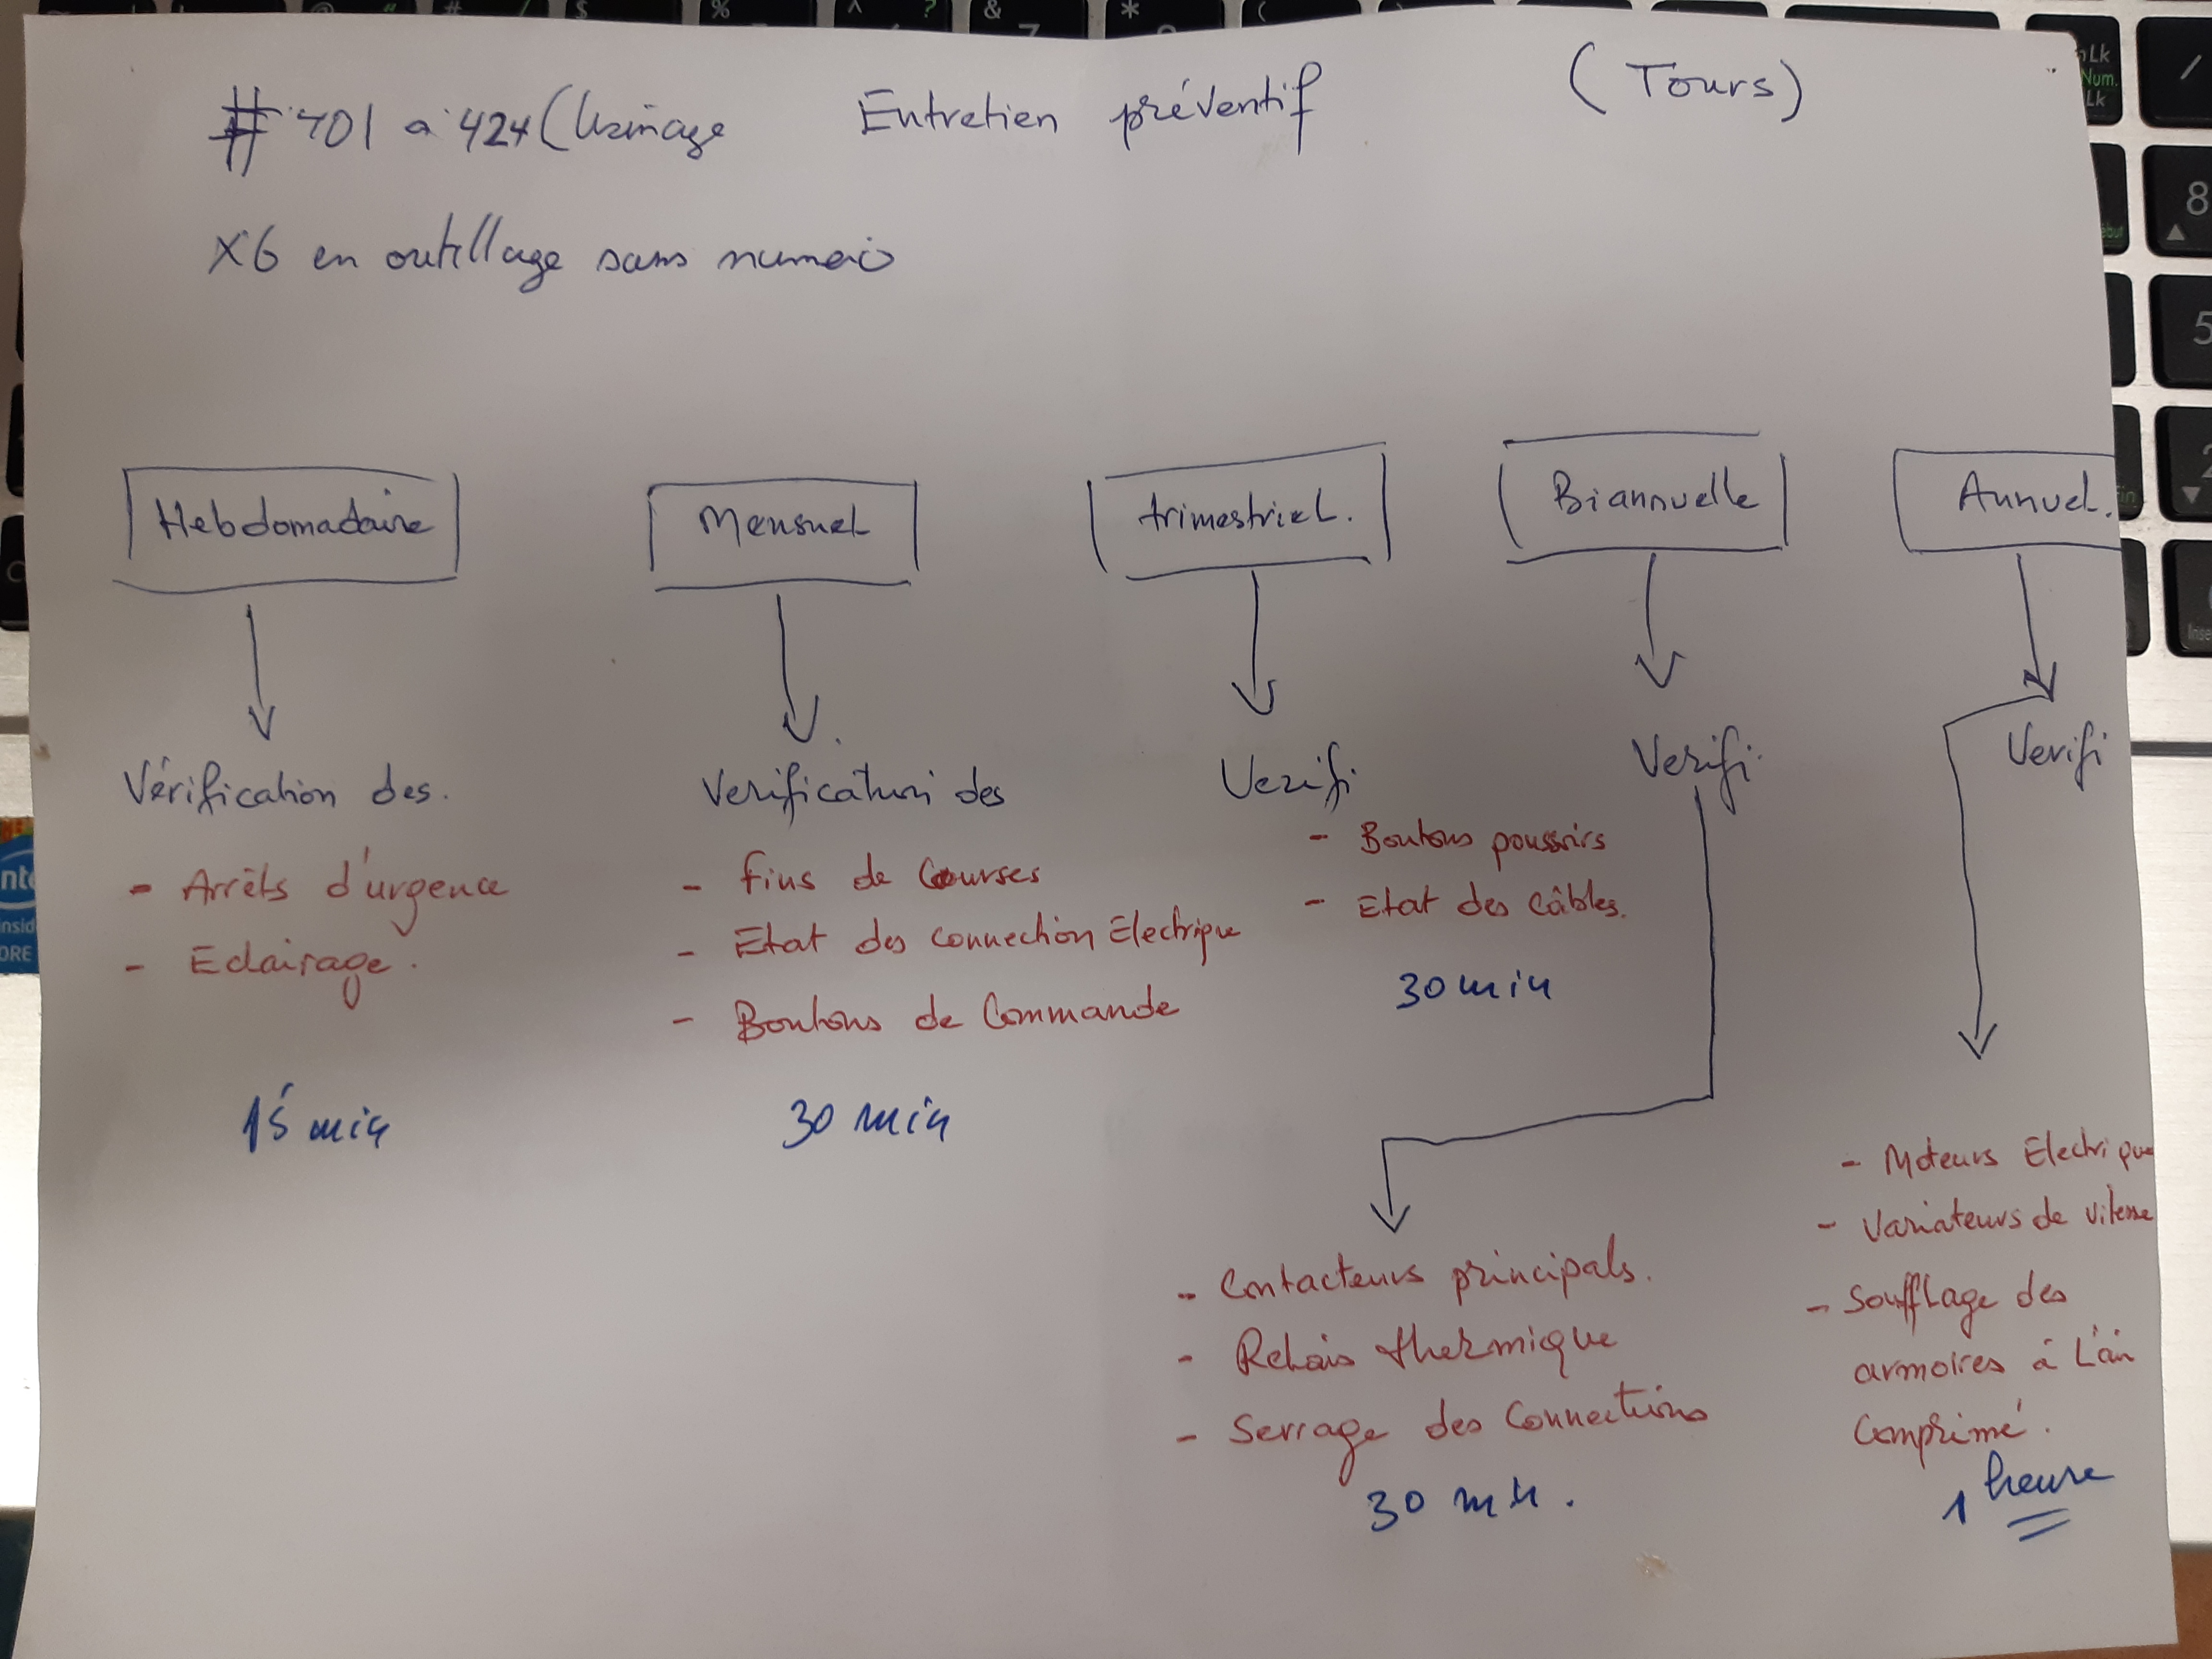 # 401 a 424 (Usinage
Entretien préventif
(Tours)
X6 en outillage sans numero
Hebdomadaire
Vérification des.
- Arrêts d'urgence
- Eclairage.
15 min
Mensuel
Verification des
- fins de Courses
- Etat des connection Electrique
- Boutons de Commande
30 min
trimestriel.
Verifi
- Boutons poussoirs
- Etat des câbles.
30 min
Biannuelle
Verifi.
- Contacteurs principals.
- Relais thermique
- Serrage des Connections
30 min.
Annuel.
Verifi
- Moteurs Electrique
- Variateurs de vitesse
- Soufflage des
armoires à L'air
Comprimé.
1 heure